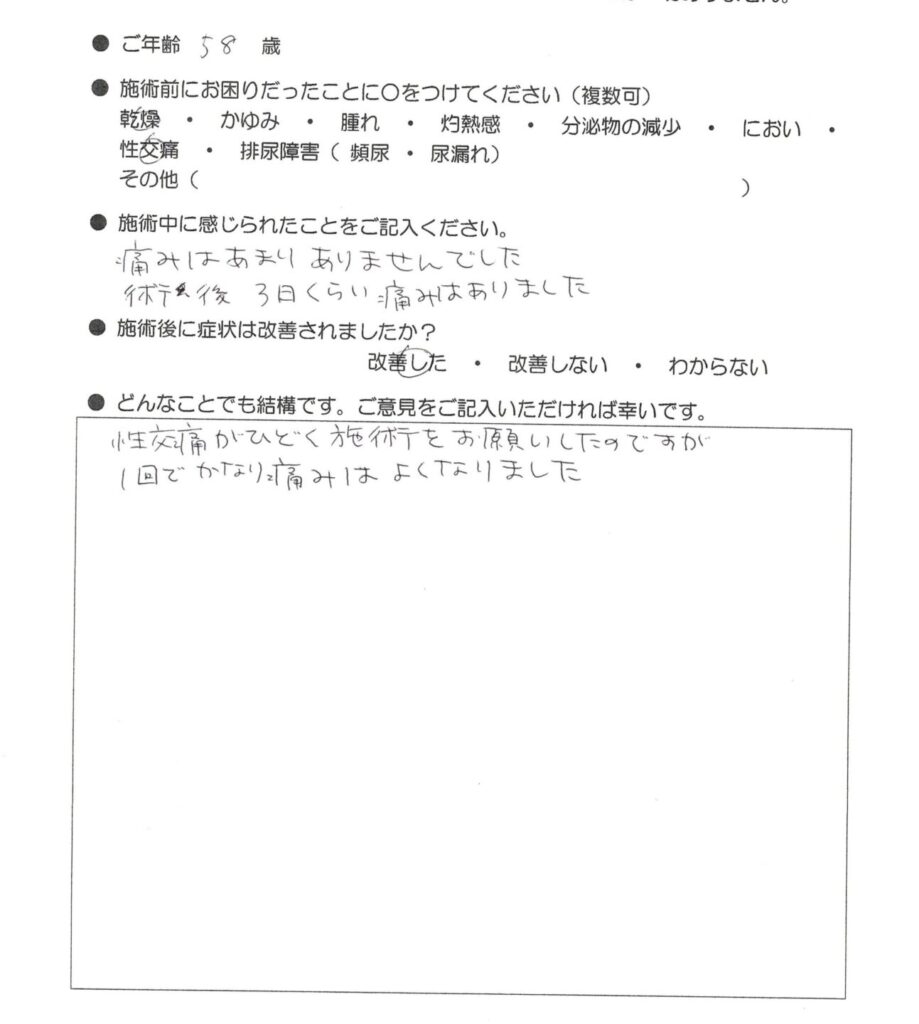 ● ご年齢 58 歳
● 施術前にお困りだったことに〇をつけてください（複数可）
乾燥 ・ かゆみ ・ 腫れ ・ 灼熱感 ・ 分泌物の減少 ・ におい ・
性交痛 ・ 排尿障害（ 頻尿 ・ 尿漏れ）
その他（ ）
● 施術中に感じられたことをご記入ください。
痛みはあまりありませんでした
術後 3日くらい痛みはありました
● 施術後に症状は改善されましたか？
改善した ・ 改善しない ・ わからない
● どんなことでも結構です。ご意見をご記入いただければ幸いです。
性交痛がひどく施術をお願いしたのですが
1回でかなり痛みはよくなりました